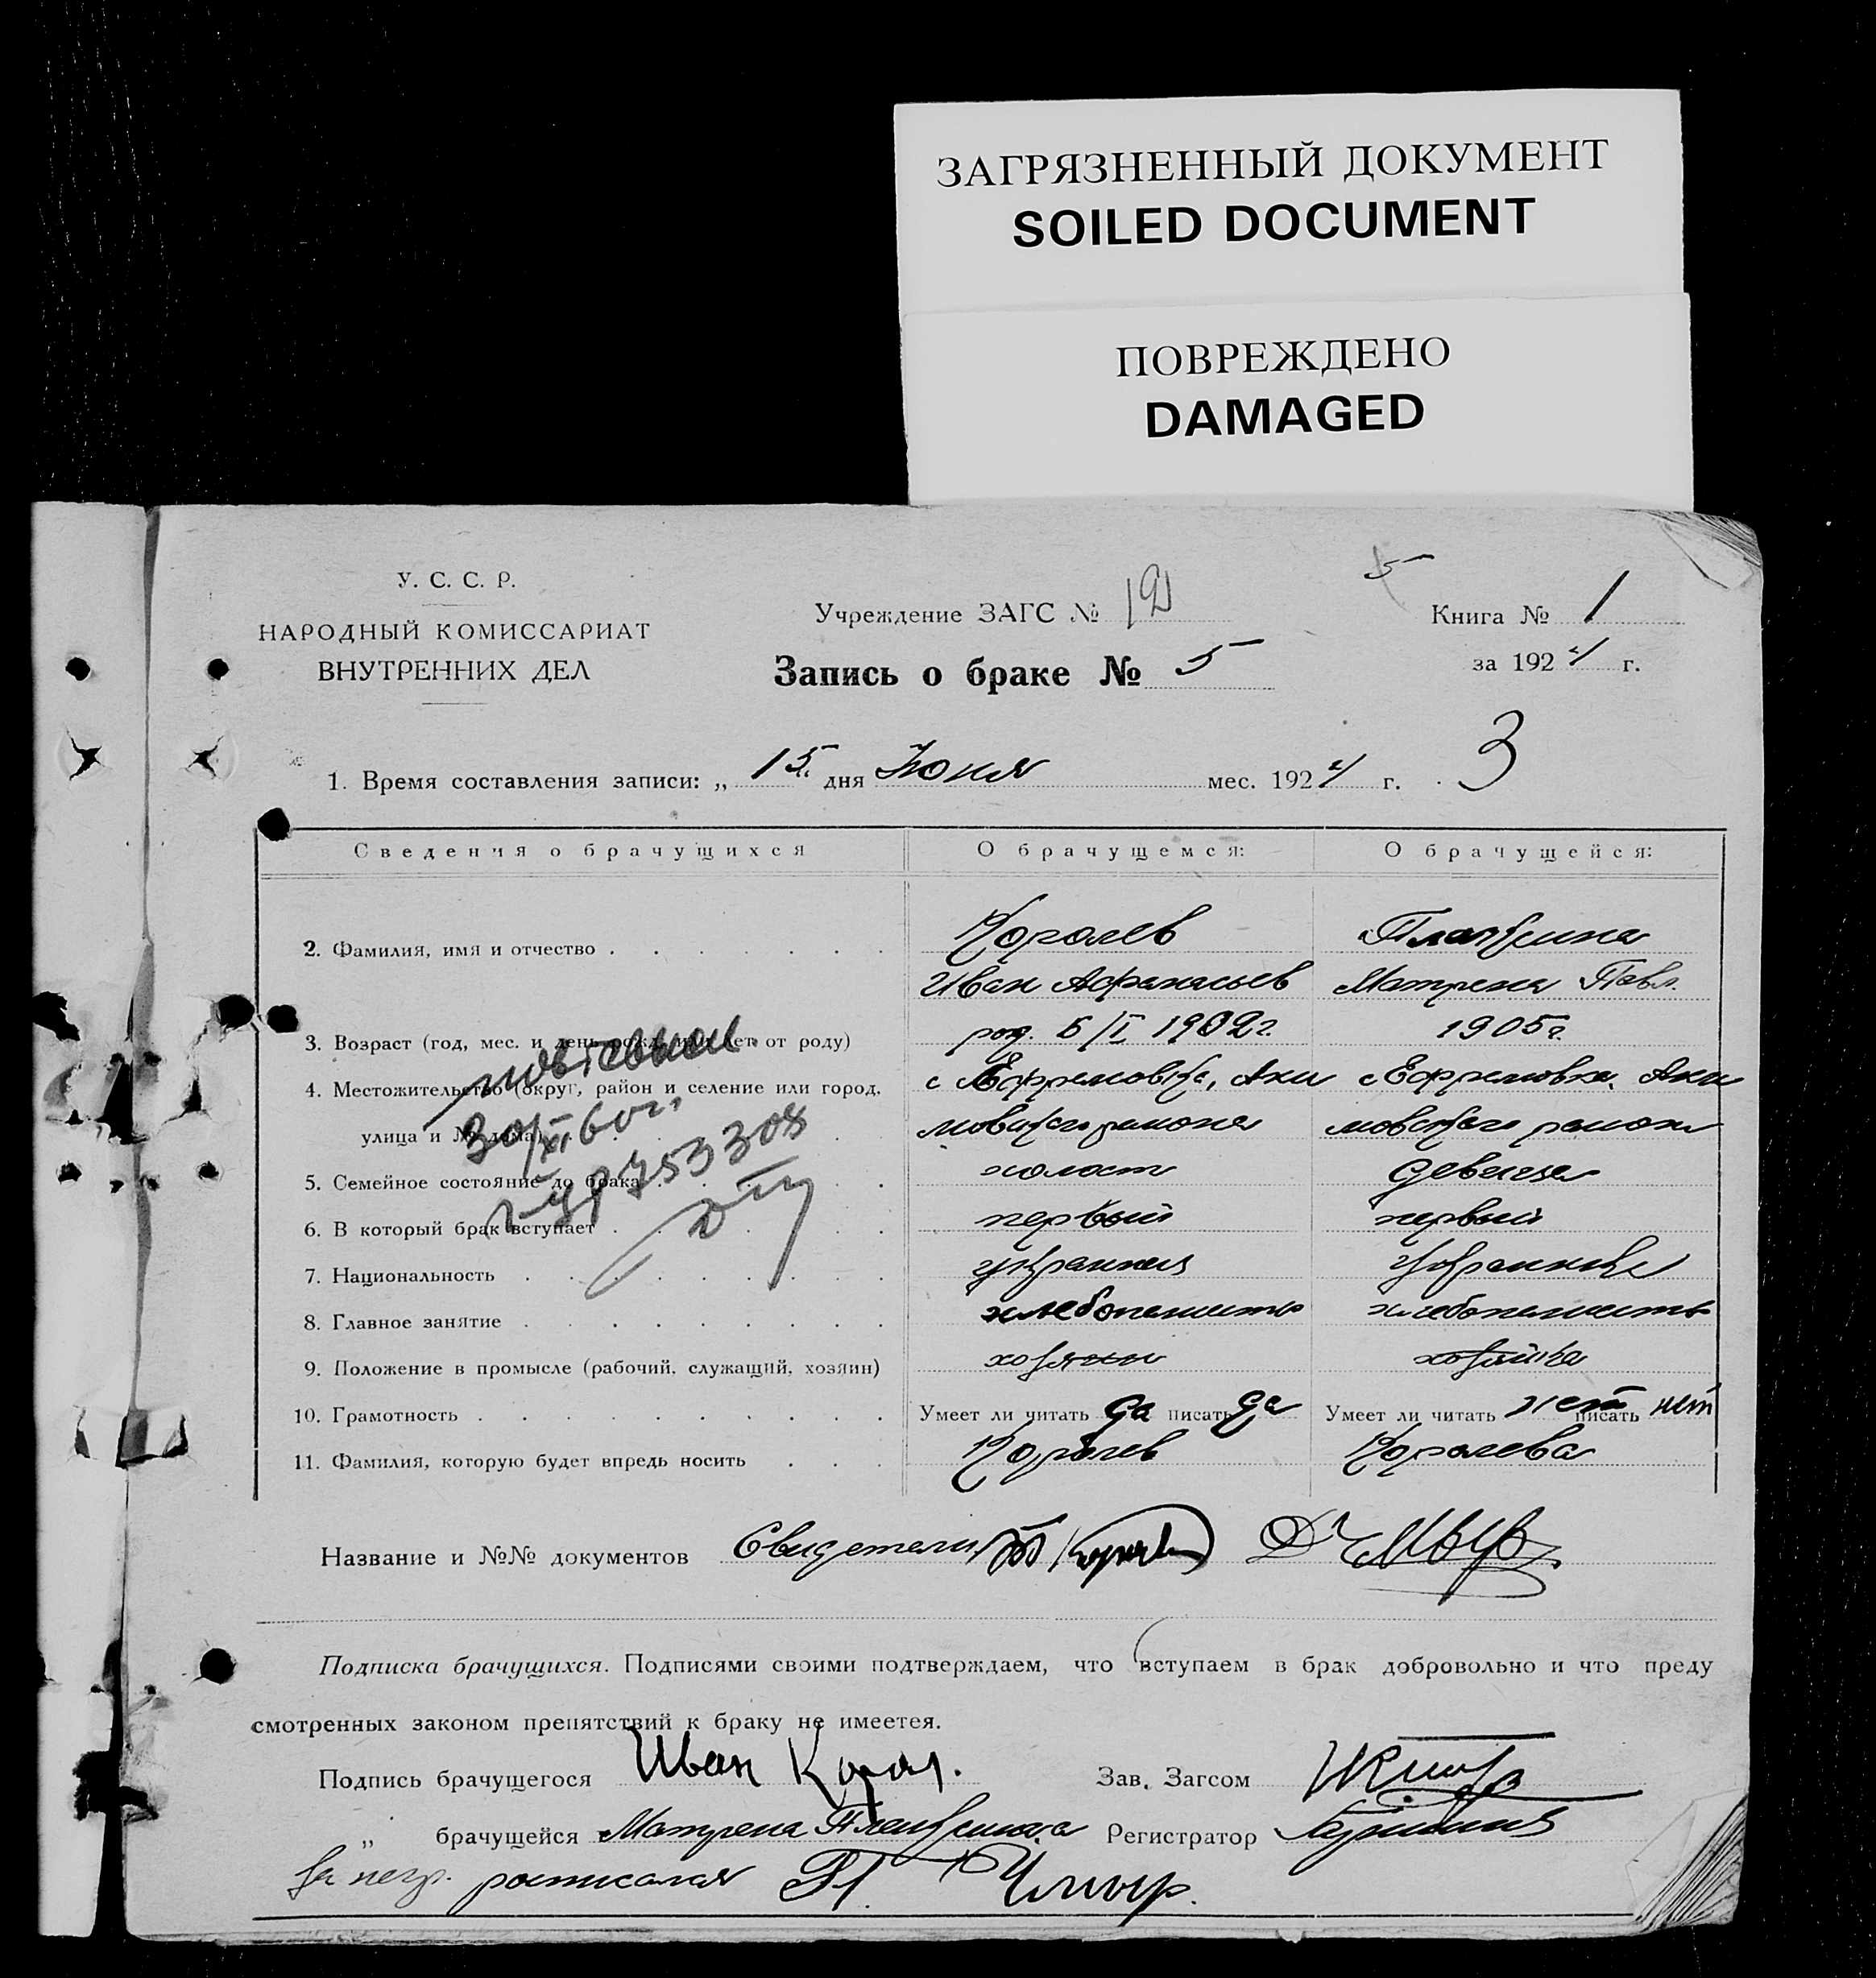 ЗАГРЯЗНЕННЫЙ ДОКУМЕНТ
SOILED DOCUMENT
ПОВРЕЖДЕНО
DAMAGED
У. С. С. Р.
НАРОДНЫЙ КОМИССАРИАТ
ВНУТРЕННИХ ДЕЛ
5
Учреждение ЗАГС №
Книга № 1
Запись о браке № 5
за 1924 г.
1. Время составления записи: „ 15 дня Июня мес. 1924 г.
3
Сведения о брачущихся О брачущемся: О брачущейся:
2. Фамилия, имя и отчество Королев
Иван Афанасьев Матрена Павл.
3. Возраст (год, мес. и день рожд. или лет от роду) род. 5/I 1902 г. 1905 г.
4. Местожительство (округ, район и селение или город, с Ефремовка, Аки с Ефремовка, Аки
улица и № дома) мовского района мовского района
5. Семейное состояние до брака холост девица
6. В который брак вступает первый первый
7. Национальность украинец украинка
8. Главное занятие хлебопашество хлебопашество
9. Положение в промысле (рабочий, служащий, хозяин) хозяин хозяйка
10. Грамотность Умеет ли читать да писать да Умеет ли читать нет писать нет
11. Фамилия, которую будет впредь носить Королев Королева
30/XI 60 г.
Название и №№ документов Свидетели
Подписка брачущихся. Подписями своими подтверждаем, что вступаем в брак добровольно и что преду
смотренных законом препятствий к браку не имеетея.
Подпись брачущегося Иван Корол. Зав. Загсом
„ брачущейся Матрена Регистратор
За негр. росписался